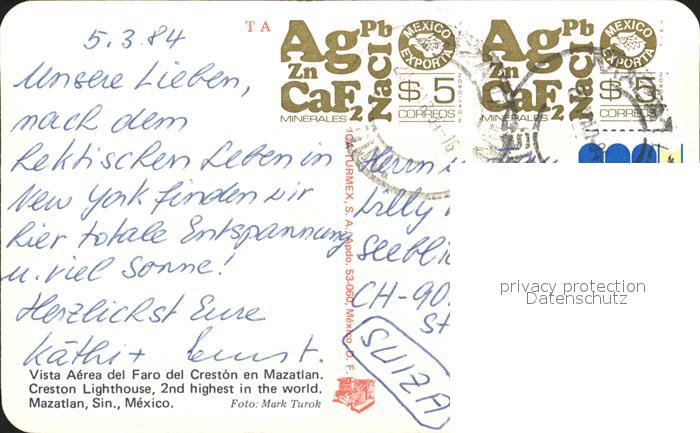 5.3.84
Unsere Lieben,
nach dem
hektischen Leben in
New York finden wir
hier totale Entspannung
u. viel Sonne!
Herzlichst Eure
Käthi + Ernst.
Vista Aérea del Faro del Crestón en Mazatlan.
Creston Lighthouse, 2nd highest in the world.
Mazatlan, Sin., México.
Foto: Mark Turok
TURMEX, S. A. Apdo. 53-060, México, D. F.
TA
Ag Pb
Zn NaCl
CaF2
MINERALES
MEXICO EXPORTA
$5
CORREOS
Ag Pb
Zn NaCl
CaF2
MINERALES
MEXICO EXPORTA
$5
CORREOS
Herrn
Lilly
Seebli
CH-90
St
SUIZA
privacy protection
Datenschutz